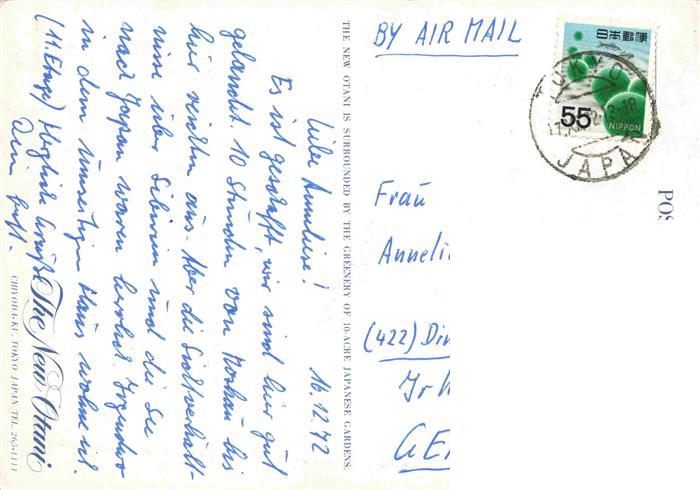 16.12.72
Liebe Anneliese!
Es ist geschafft, wir sind hier gut
gelandet. 10 Stunden von Moskau bis
hier reichten aus. Aber die Sicht
über Sibirien und die See
nach Japan waren herrlich. Irgendwo
in dem umseitigen Haus wohne ich.
(11. Etage) Herzliche Grüße
Dein
The New Otani
CHIYODA-KU, TOKYO JAPAN TEL. 265-1111
THE NEW OTANI IS SURROUNDED BY THE GREENERY OF 10-ACRE JAPANESE GARDENS.
BY AIR MAIL
日本郵便
55
NIPPON
TOKYO
JAPA
POS
Frau
Anneli
(422) Din
GE